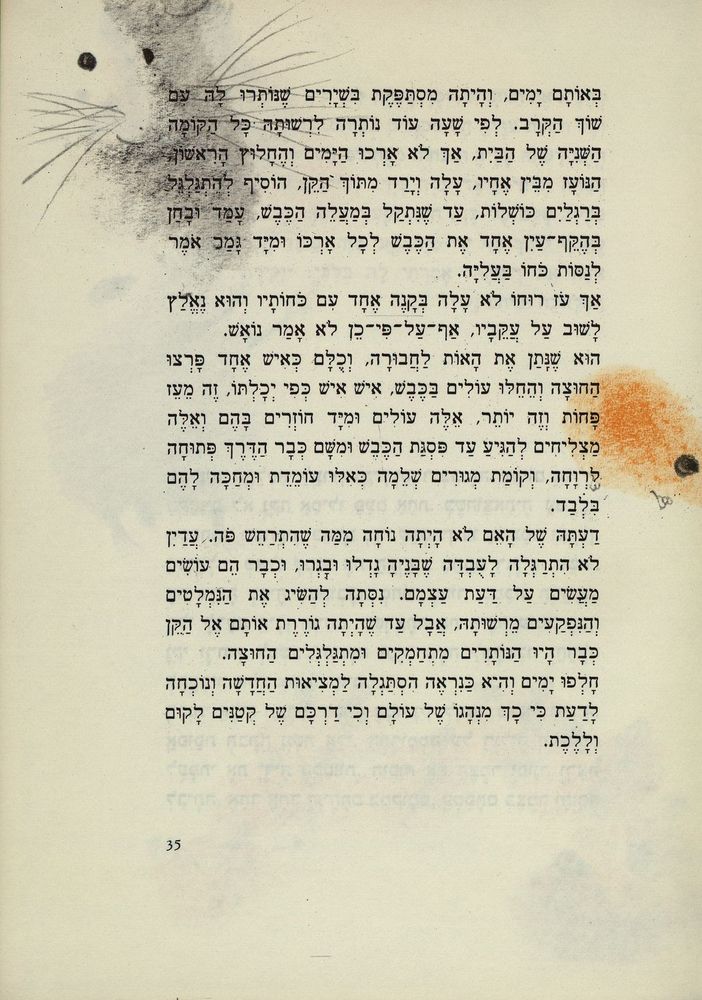 בְּאוֹתָם יָמִים, וְהָיְתָה מִסְתַּפֶּקֶת בִּשְׁיָרִים שֶׁנּוֹתְרוּ לָהּ עִם
שׁוֹךְ הַקְּרָב. לְפִי שָׁעָה עוֹד נוֹתְרָה לִרְשׁוּתָהּ כָּל הַקּוֹמָה
הַשְּׁנִיָּה שֶׁל הַבַּיִת, אַךְ לֹא אָרְכוּ הַיָּמִים וְהֶחָלוּץ הָרִאשׁוֹן,
הַנּוֹעָז מִבֵּין אֶחָיו, עָלָה וְיָרַד מִתּוֹךְ הַקֵּן, הוֹסִיף לְהִתְגַּלְגֵּל
בְּרַגְלַיִם כּוֹשְׁלוֹת, עַד שֶׁנִּתְקַל בְּמַעֲלֵה הַכֶּבֶשׁ, עָמַד וּבָחַן
בְּהֶקֵּף־עַיִן אֶחָד אֶת הַכֶּבֶשׁ לְכָל אָרְכּוֹ וּמִיָּד גָּמַר אֹמֶר
לְנַסּוֹת כֹּחוֹ בַּעֲלִיָּה.
אַךְ עֹז רוּחוֹ לֹא עָלָה בְּקָנֶה אֶחָד עִם כֹּחוֹתָיו וְהוּא נֶאֱלַץ
לָשׁוּב עַל עֲקֵבָיו, אַף־עַל־פִּי־כֵן לֹא אָמַר נוֹאָשׁ.
הוּא שֶׁנָּתַן אֶת הָאוֹת לַחֲבוּרָה, וְכֻלָּם כְּאִישׁ אֶחָד פָּרְצוּ
הַחוּצָה וְהֵחֵלּוּ עוֹלִים בַּכֶּבֶשׁ, אִישׁ אִישׁ כְּפִי יְכָלְתּוֹ, זֶה מֵעֵז
פָּחוֹת וְזֶה יוֹתֵר, אֵלֶּה עוֹלִים וּמִיָּד חוֹזְרִים בָּהֶם וְאֵלֶּה
מַצְלִיחִים לְהַגִּיעַ עַד פִּסְגַּת הַכֶּבֶשׁ וּמִשָּׁם כְּבָר הַדֶּרֶךְ פְּתוּחָה
לִרְוָחָה, וְקוֹמַת מְגוּרִים שְׁלֵמָה כְּאִלּוּ עוֹמֶדֶת וּמְחַכָּה לָהֶם
בִּלְבַד.
דַּעְתָּהּ שֶׁל הָאֵם לֹא הָיְתָה נוֹחָה מִמַּה שֶּׁהִתְרַחֵשׁ פֹּה. עֲדַיִן
לֹא הִתְרַגְּלָה לָעֻבְדָּה שֶׁבָּנֶיהָ גָדְלוּ וּבָגְרוּ, וּכְבָר הֵם עוֹשִׂים
מַעֲשִׂים עַל דַּעַת עַצְמָם. נִסְּתָה לְהַשִּׂיג אֶת הַנִּמְלָטִים
וְהַנִּפְקָעִים מֵרְשׁוּתָהּ, אֲבָל עַד שֶׁהָיְתָה גוֹרֶרֶת אוֹתָם אֶל הַקֵּן
כְּבָר הָיוּ הַנּוֹתָרִים מִתְחַמְּקִים וּמִתְגַּלְגְּלִים הַחוּצָה.
חָלְפוּ יָמִים וְהִיא כַּנִּרְאֶה הִסְתַּגְּלָה לַמְּצִיאוּת הַחֲדָשָׁה וְנוֹכְחָה
לָדַעַת כִּי כָךְ מִנְהָגוֹ שֶׁל עוֹלָם וְכִי דַרְכָּם שֶׁל קְטַנִּים לָקוּם
וְלָלֶכֶת.
35